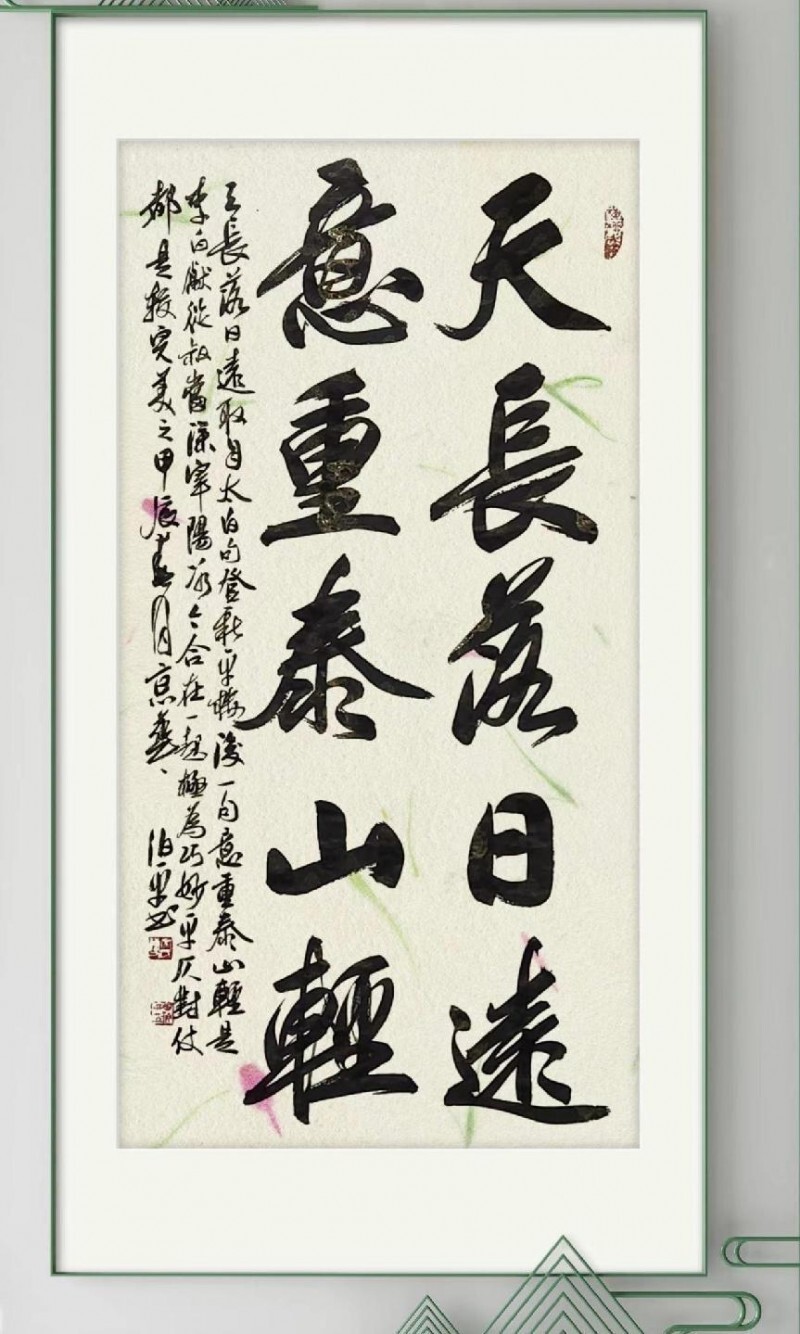 天長落日遠
意重泰山輕
天長落日遠取自太白句登新平樓後一句意重泰山輕是
李白獻從叔當塗宰陽冰今合在一起極為巧妙平仄對仗
都是較完美之甲辰春月京華
伯平书